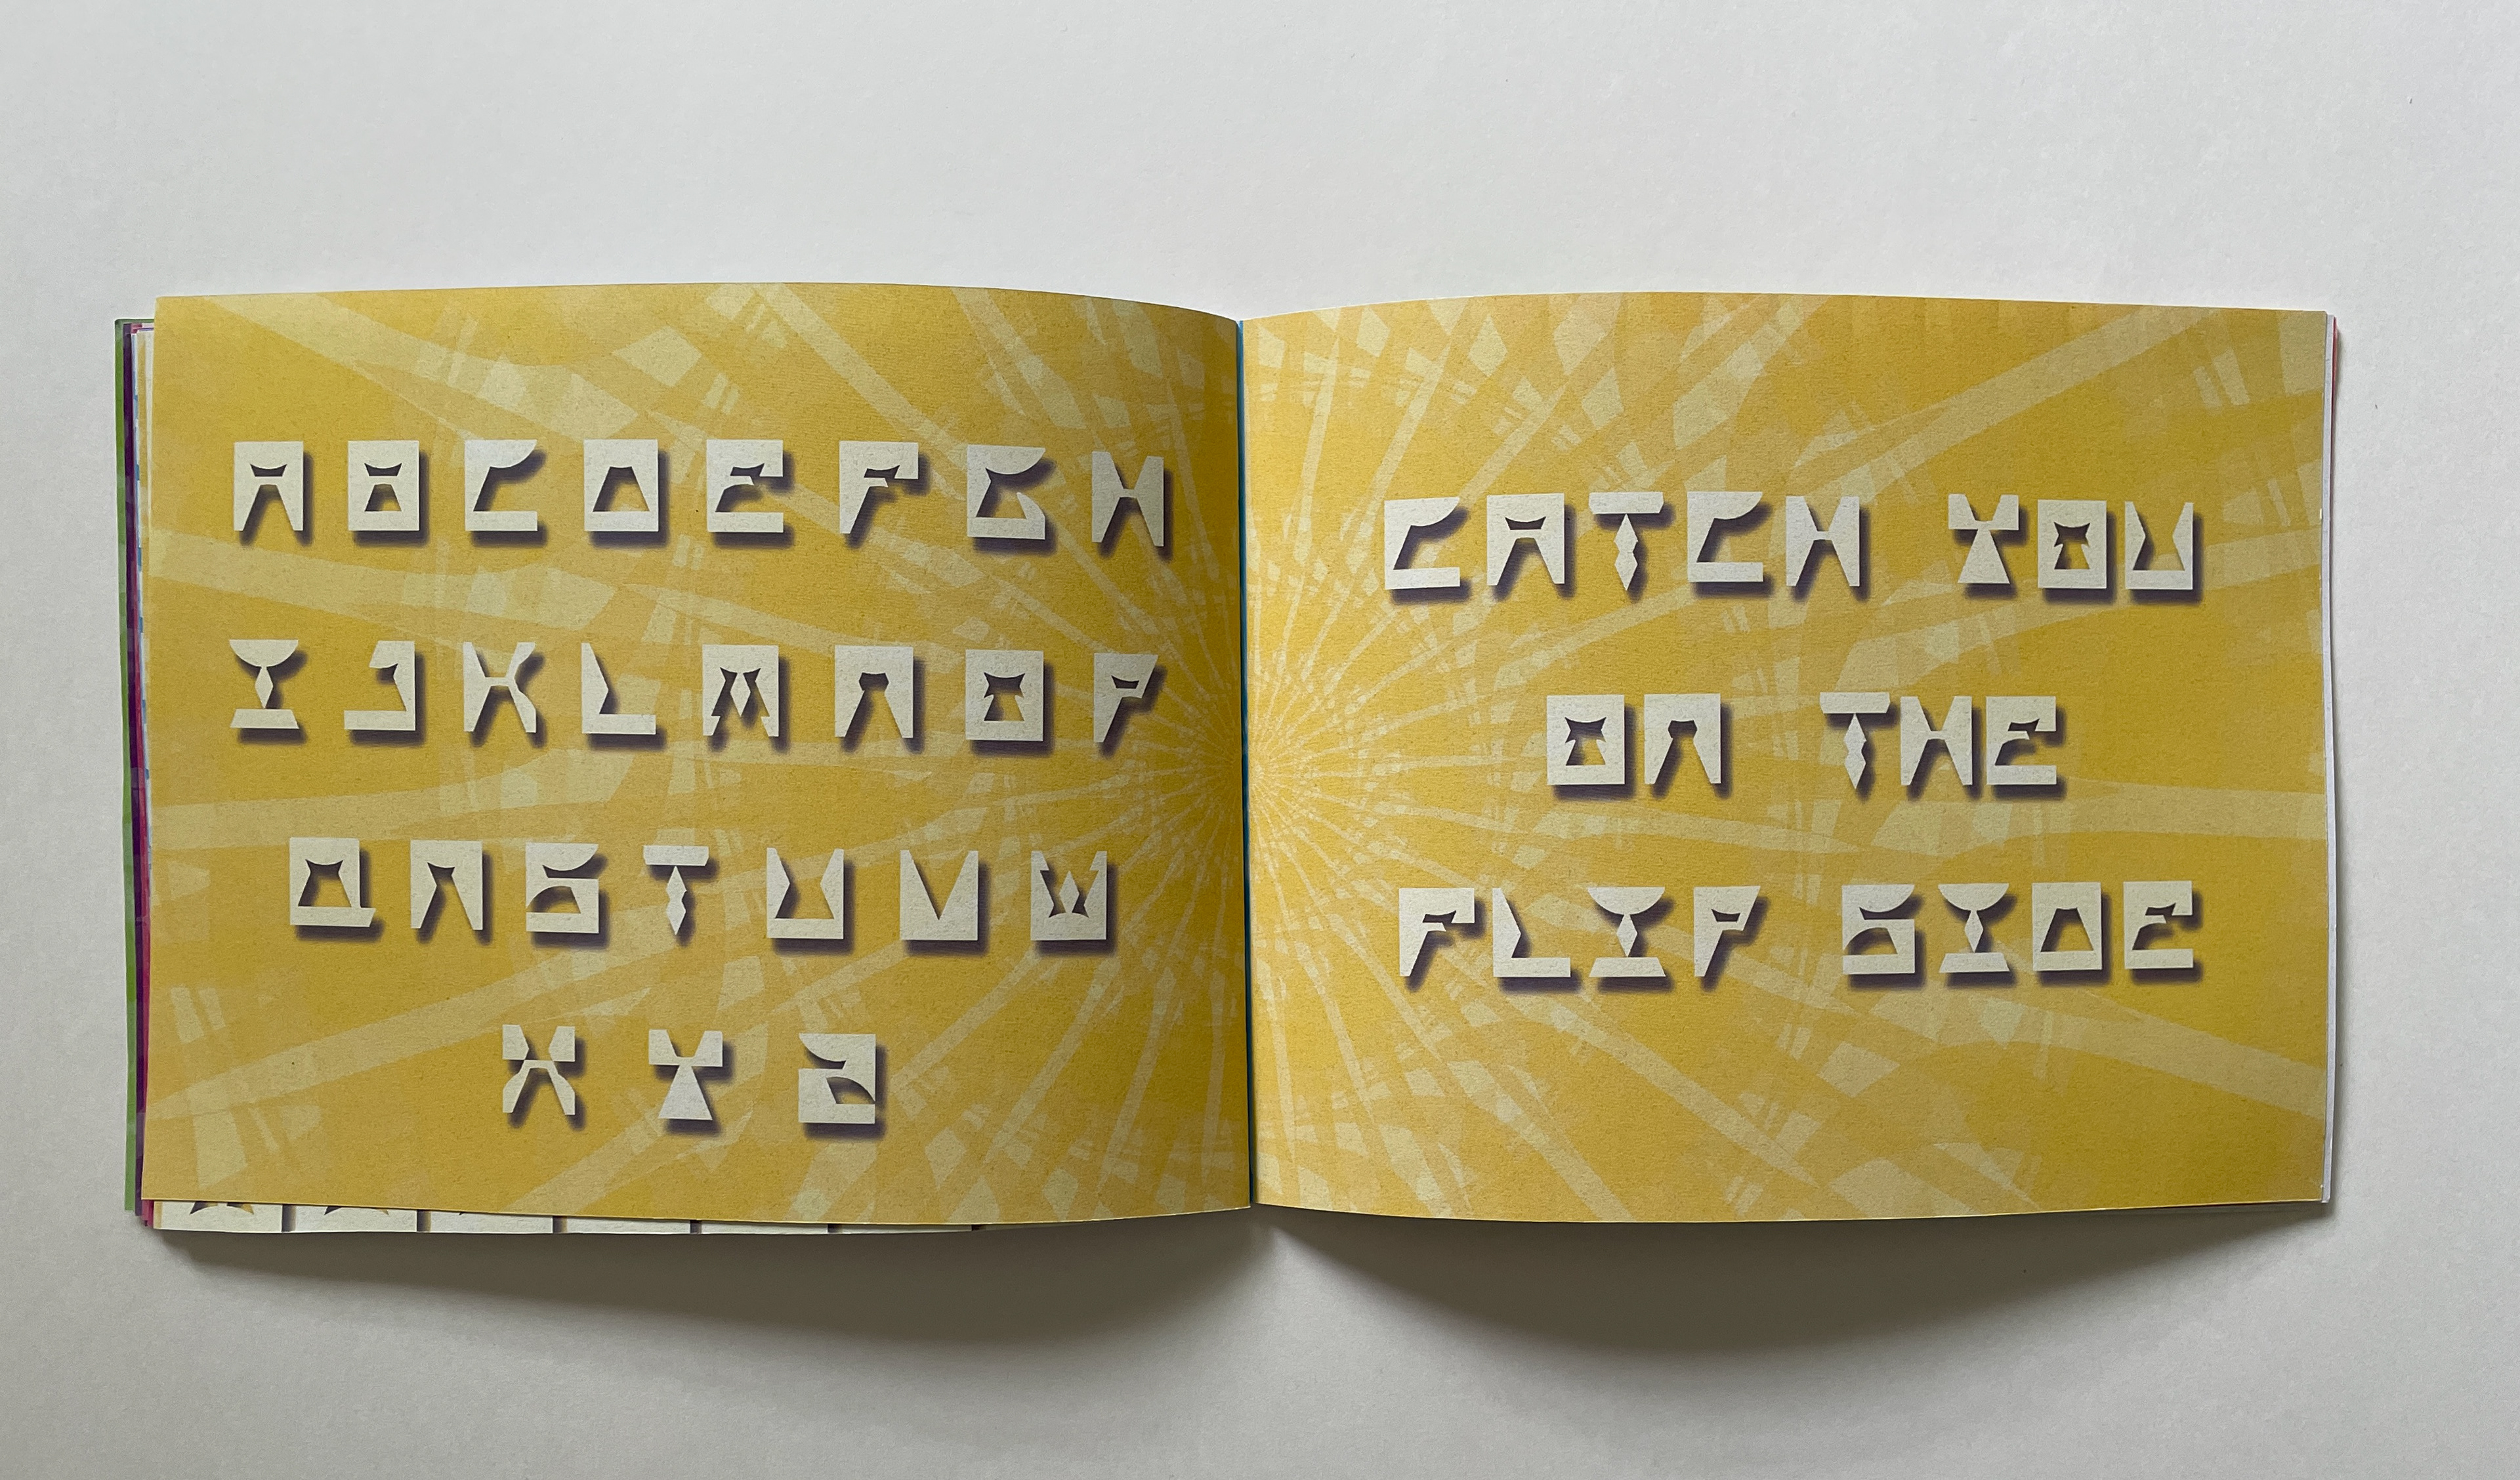 A B C D E F G H
I J K L M N O P
Q R S T U V W
X Y Z
CATCH YOU
ON THE
FLIP SIDE